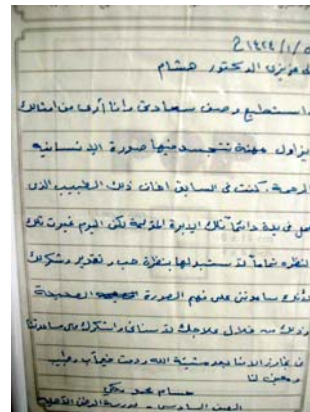 ١٤٢٤/١/٥
عزيزي الدكتور هشام
استطيع وصف سعادتي وانا أرى من امثالك
يزاول مهنة تتجسد فيها صورة الإنسانيه
الرحمة. كنت في السابق اهاب ذلك الطبيب الذي
في يده دائماً تلك الإبرة المؤلمة لكن اليوم غيرت تلك
النظره تماماً لاستبدلها بنظرة حب وتقدير وشكر لك
لأنك ساعدتني على فهم الصورة الصحيحة
وذلك من خلال علاجك لاسناني واشكرك على مساعدتنا
في تجاوز الامنا بعد مشيئة الله ودمت خير طبيب
ومعين لنا
حسام محمد
الصف السادس - مدرسة